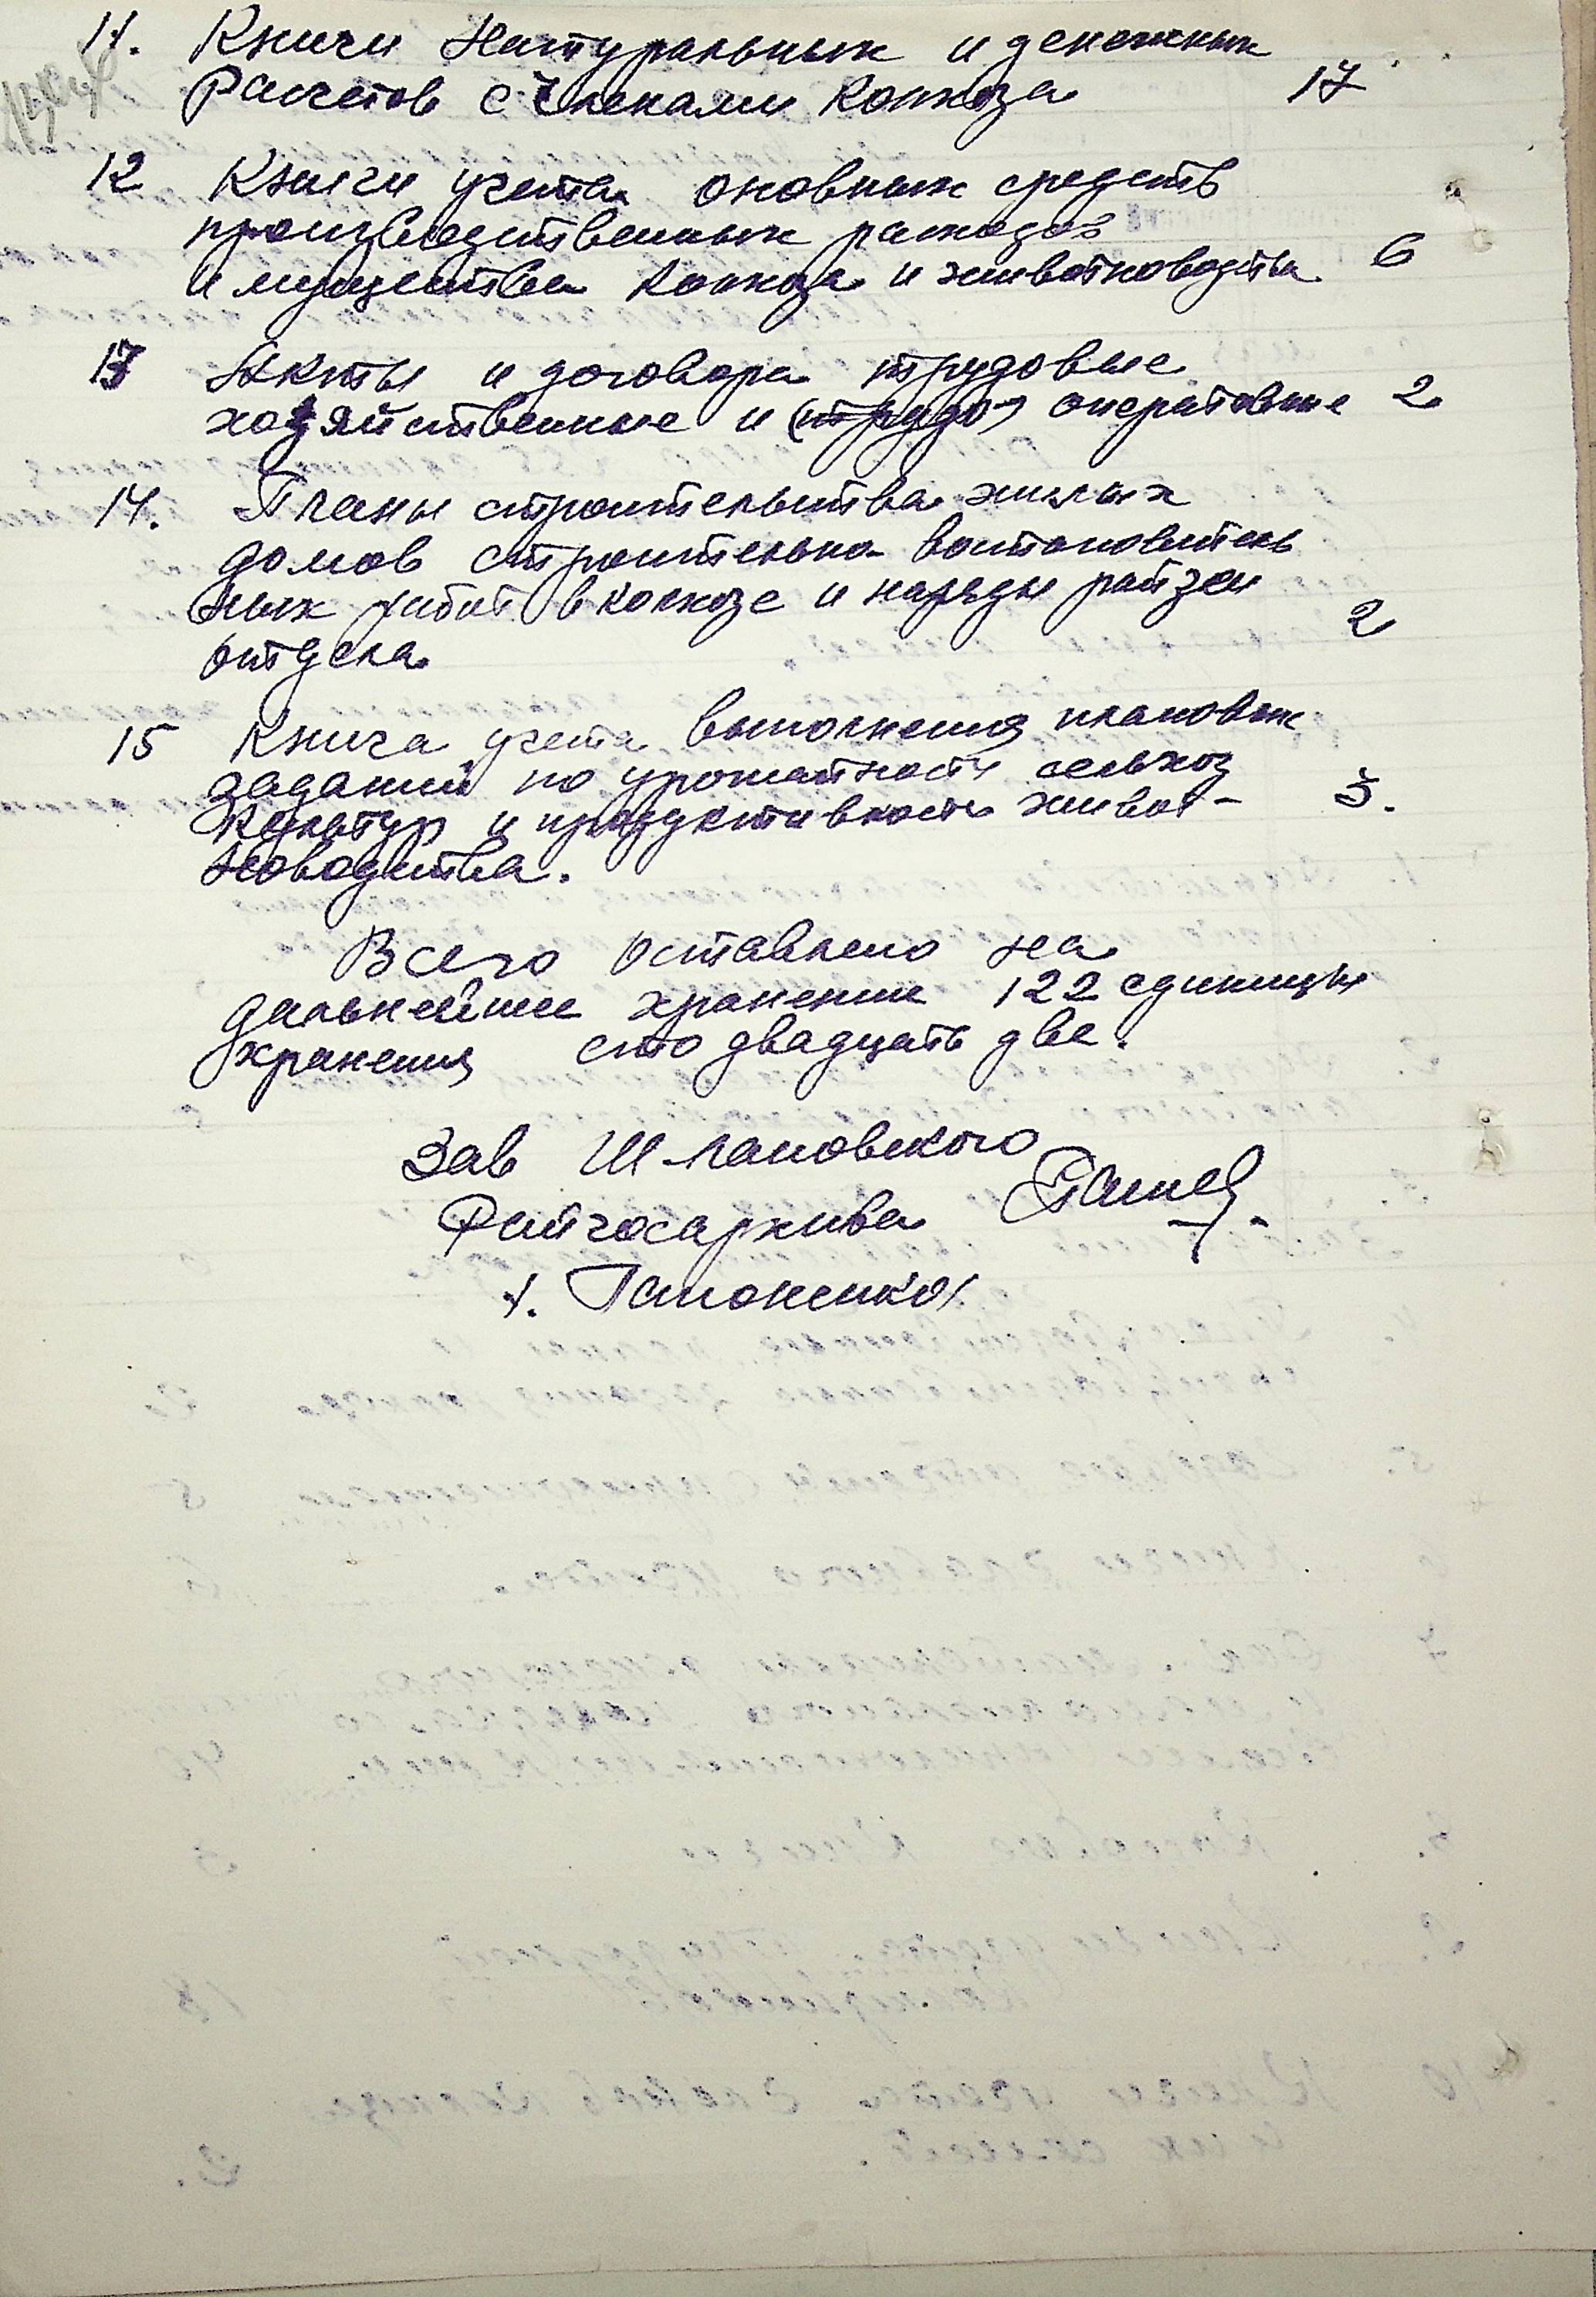 11. Книги Натуральных и денежных
Расчетов с Членами колхоза 17
12 Книги учета основных средств
производственных расходов
имущества колхоза и животноводства 6
13 Акты и договора трудовые
хозяйственные и (трудо) оперативные 2
14. Планы строительства жилых
домов строительно востановитель
ных работ в колхозе и наряды райзем
отдела 2
15 Книга учета выполнения плановых
заданий по урожайности сельхоз
культур и продуктивность живот- 3.
новодства.
Всего оставлено на
дальнейшее хранение 122 единицы
хранения сто двадцать две.
Зав Шполяновского
Райгосархива
/. Гапоненко/